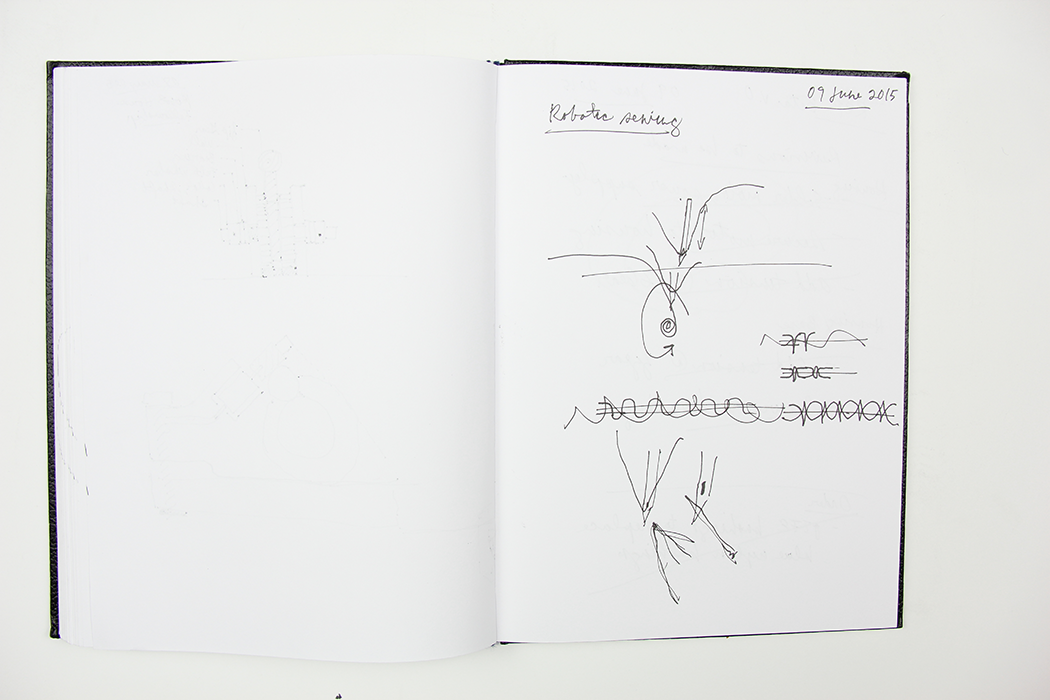 09 June 2015
Robotic sewing